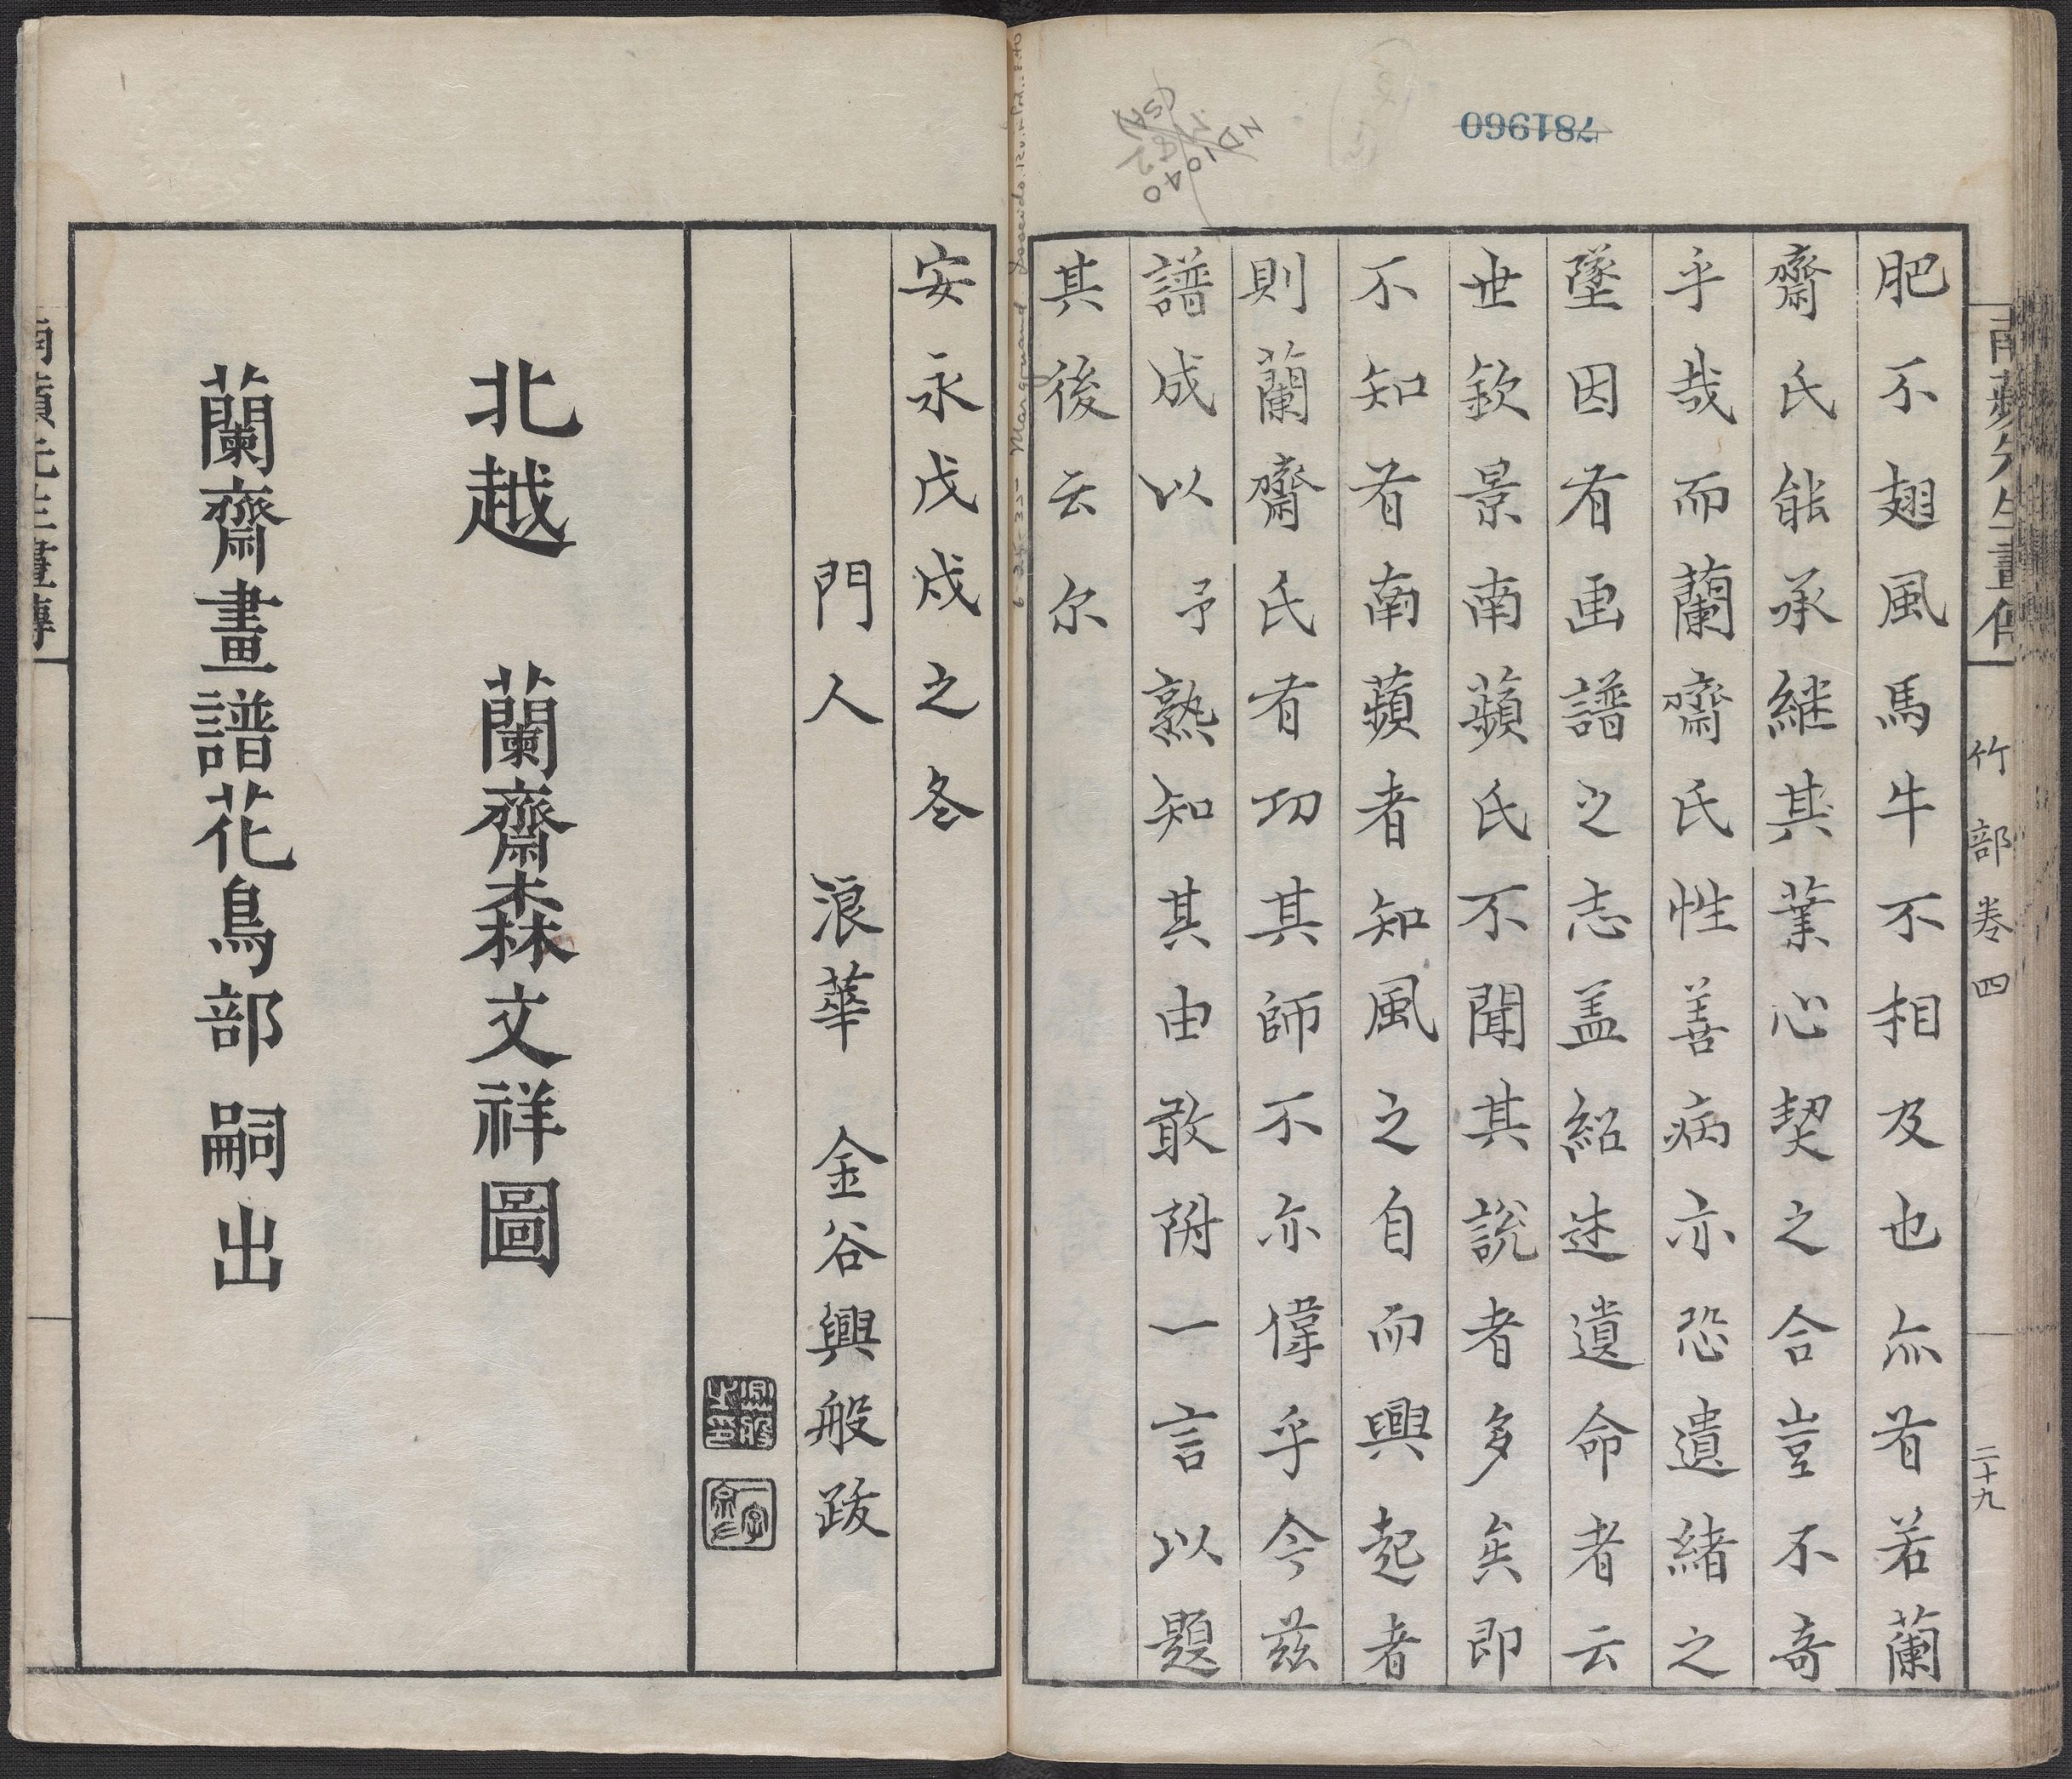 781960
ND1040
南蘋先生畫傳
竹部卷四
二十九
肥不翅風馬牛不相及也亦有若蘭
齋氏能承継其業心契之合豈不奇
乎哉而蘭齋氏性善病亦恐遺緒之
墜因有画譜之志盖紹述遺命者云
世欽景南蘋氏不聞其説者多矣即
不知有南蘋者知風之自而興起者
則蘭齋氏有功其師不亦偉乎今茲
譜成以予熟知其由敢附一言以題
其後云尔
安永戊戌之冬
門人 浪華 金谷興般跋
北越 蘭齋森文祥圖
蘭齋畫譜花鳥部 嗣出
南蘋先生畫傳